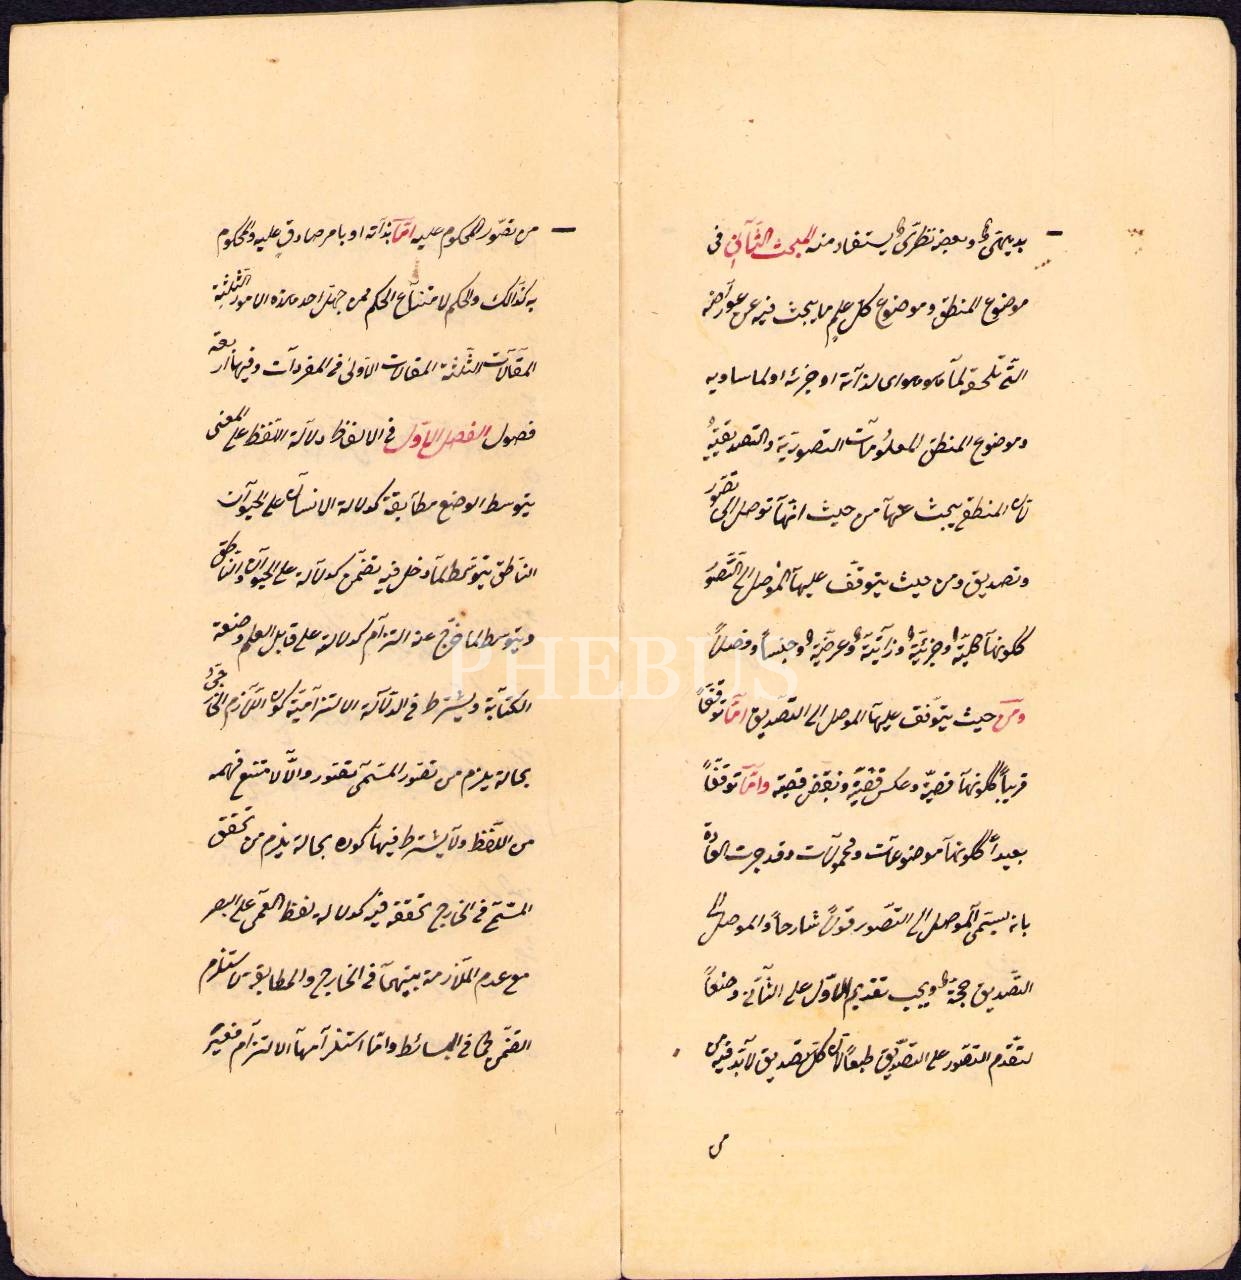 بديهىّ وبعضه نظرىّ يستفاد منه المبحث الثّانى فى
موضوع المنطق وموضوع كل علم ما يبحث فيه عن عوارضه
التّى تلحقه لما هو هو اى لذاته او جزئه او لما يساويه
وموضوع المنطق المعلومات التصوريّة والتصديقيّة
لان المنطقى يبحث عنها من حيث انّها توصل الى تصّور
وتصديق ومن حيث يتوقّف عليها الموصل الى التّصّور
ككونها كليّة وجزئيّة وذاتيّة وعرضيّة وجنساً وفصلاً
ومن حيث يتوّقف عليها الموصل الى التّصديق امّا توقّفاً
قريباً ككونها قضيّة وعكس قضيّة ونقيض قضية وامّا توقّفاً
بعيداً ككونها موضوعات ومحمولات وقد جرت العادة
بانه يسمى الموصل الى التصّور قولاً شارحاً والموصل الى
التّصديق حجة ويجب تقديم الاوّل على الثّانى وضعاً
لتقّدم التصّور على التصديق طبعاً لان كل تصديق لا بّد فيه من
من
من تصّور المحكوم عليه امّا بذاته او بامر صادق عليه والمحكوم
به كذالك والحكم لامتناع الحكم ممن جهل احد هذه الامور الثّلثة
المقالات الثّلثة المقالات الاولى فى المفردات وفيها اربعة
فصول الفصل الاوّل فى الالفاظ دلالة اللّفظ على المعنى
بتوسط الوضع مطابقة كدلالة الانسان على الحيوان
الناطق بتوسّط لما دخل فيه تضمّن كدلالة على الحيوان والنّاطق
وبتوسط لما خرج عنه التزام كدلالة على قابل العلم وصنعة
الكتابة ويشترط فى الدلالة الالتزاميّة كون اللّازم الخارجى
بحالة يلزم من تصّور المسّمى تصّور والّا لا متنع فهمه
من اللّفظ ولا يشترط فيها كونه بحالة يلزم من تحقق
المسّمى فى الخارج تحققه فيه كدلالة لفظ العمى على البصر
مع عدم الملازمة بينهما فى الخارج والمطابقة لا تستلزم
التضّمن كما فى البسائط وامّا استلزامها الالتزام فغير